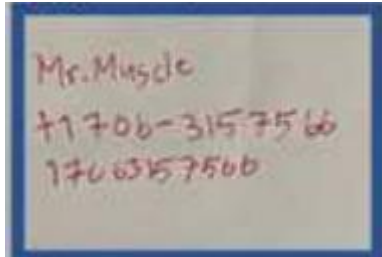 Mr. Muscle
+1706-3157566
17063157566